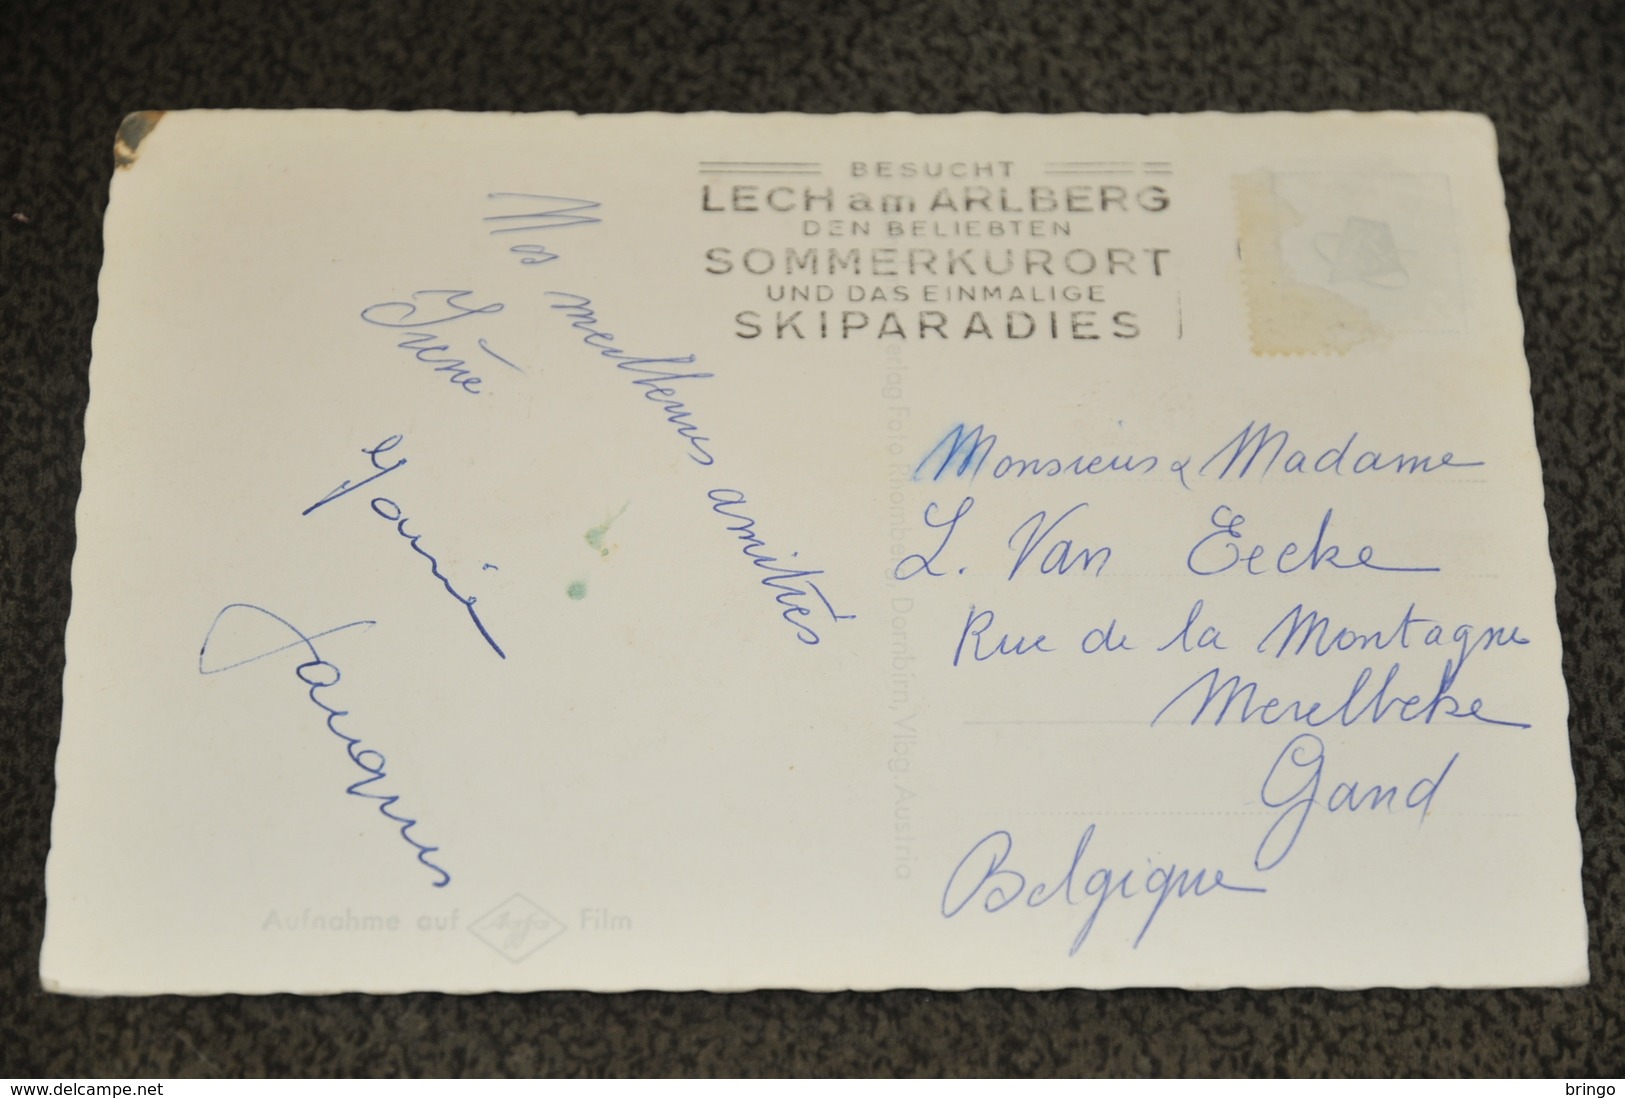 BESUCHT
LECH am ARLBERG
DEN BELIEBTEN
SOMMERKURORT
UND DAS EINMALIGE
SKIPARADIES
Mes meilleures amitiés
Irène
Jacques
Monsieur & Madame
L. Van Eecke
Rue de la Montagne
Merelbeke
Gand
Belgique
erlag Foto Rhomberg, Dornbirn, Vlbg. Austria
Aufnahme auf Agfa Film
delcampe.net
bringo